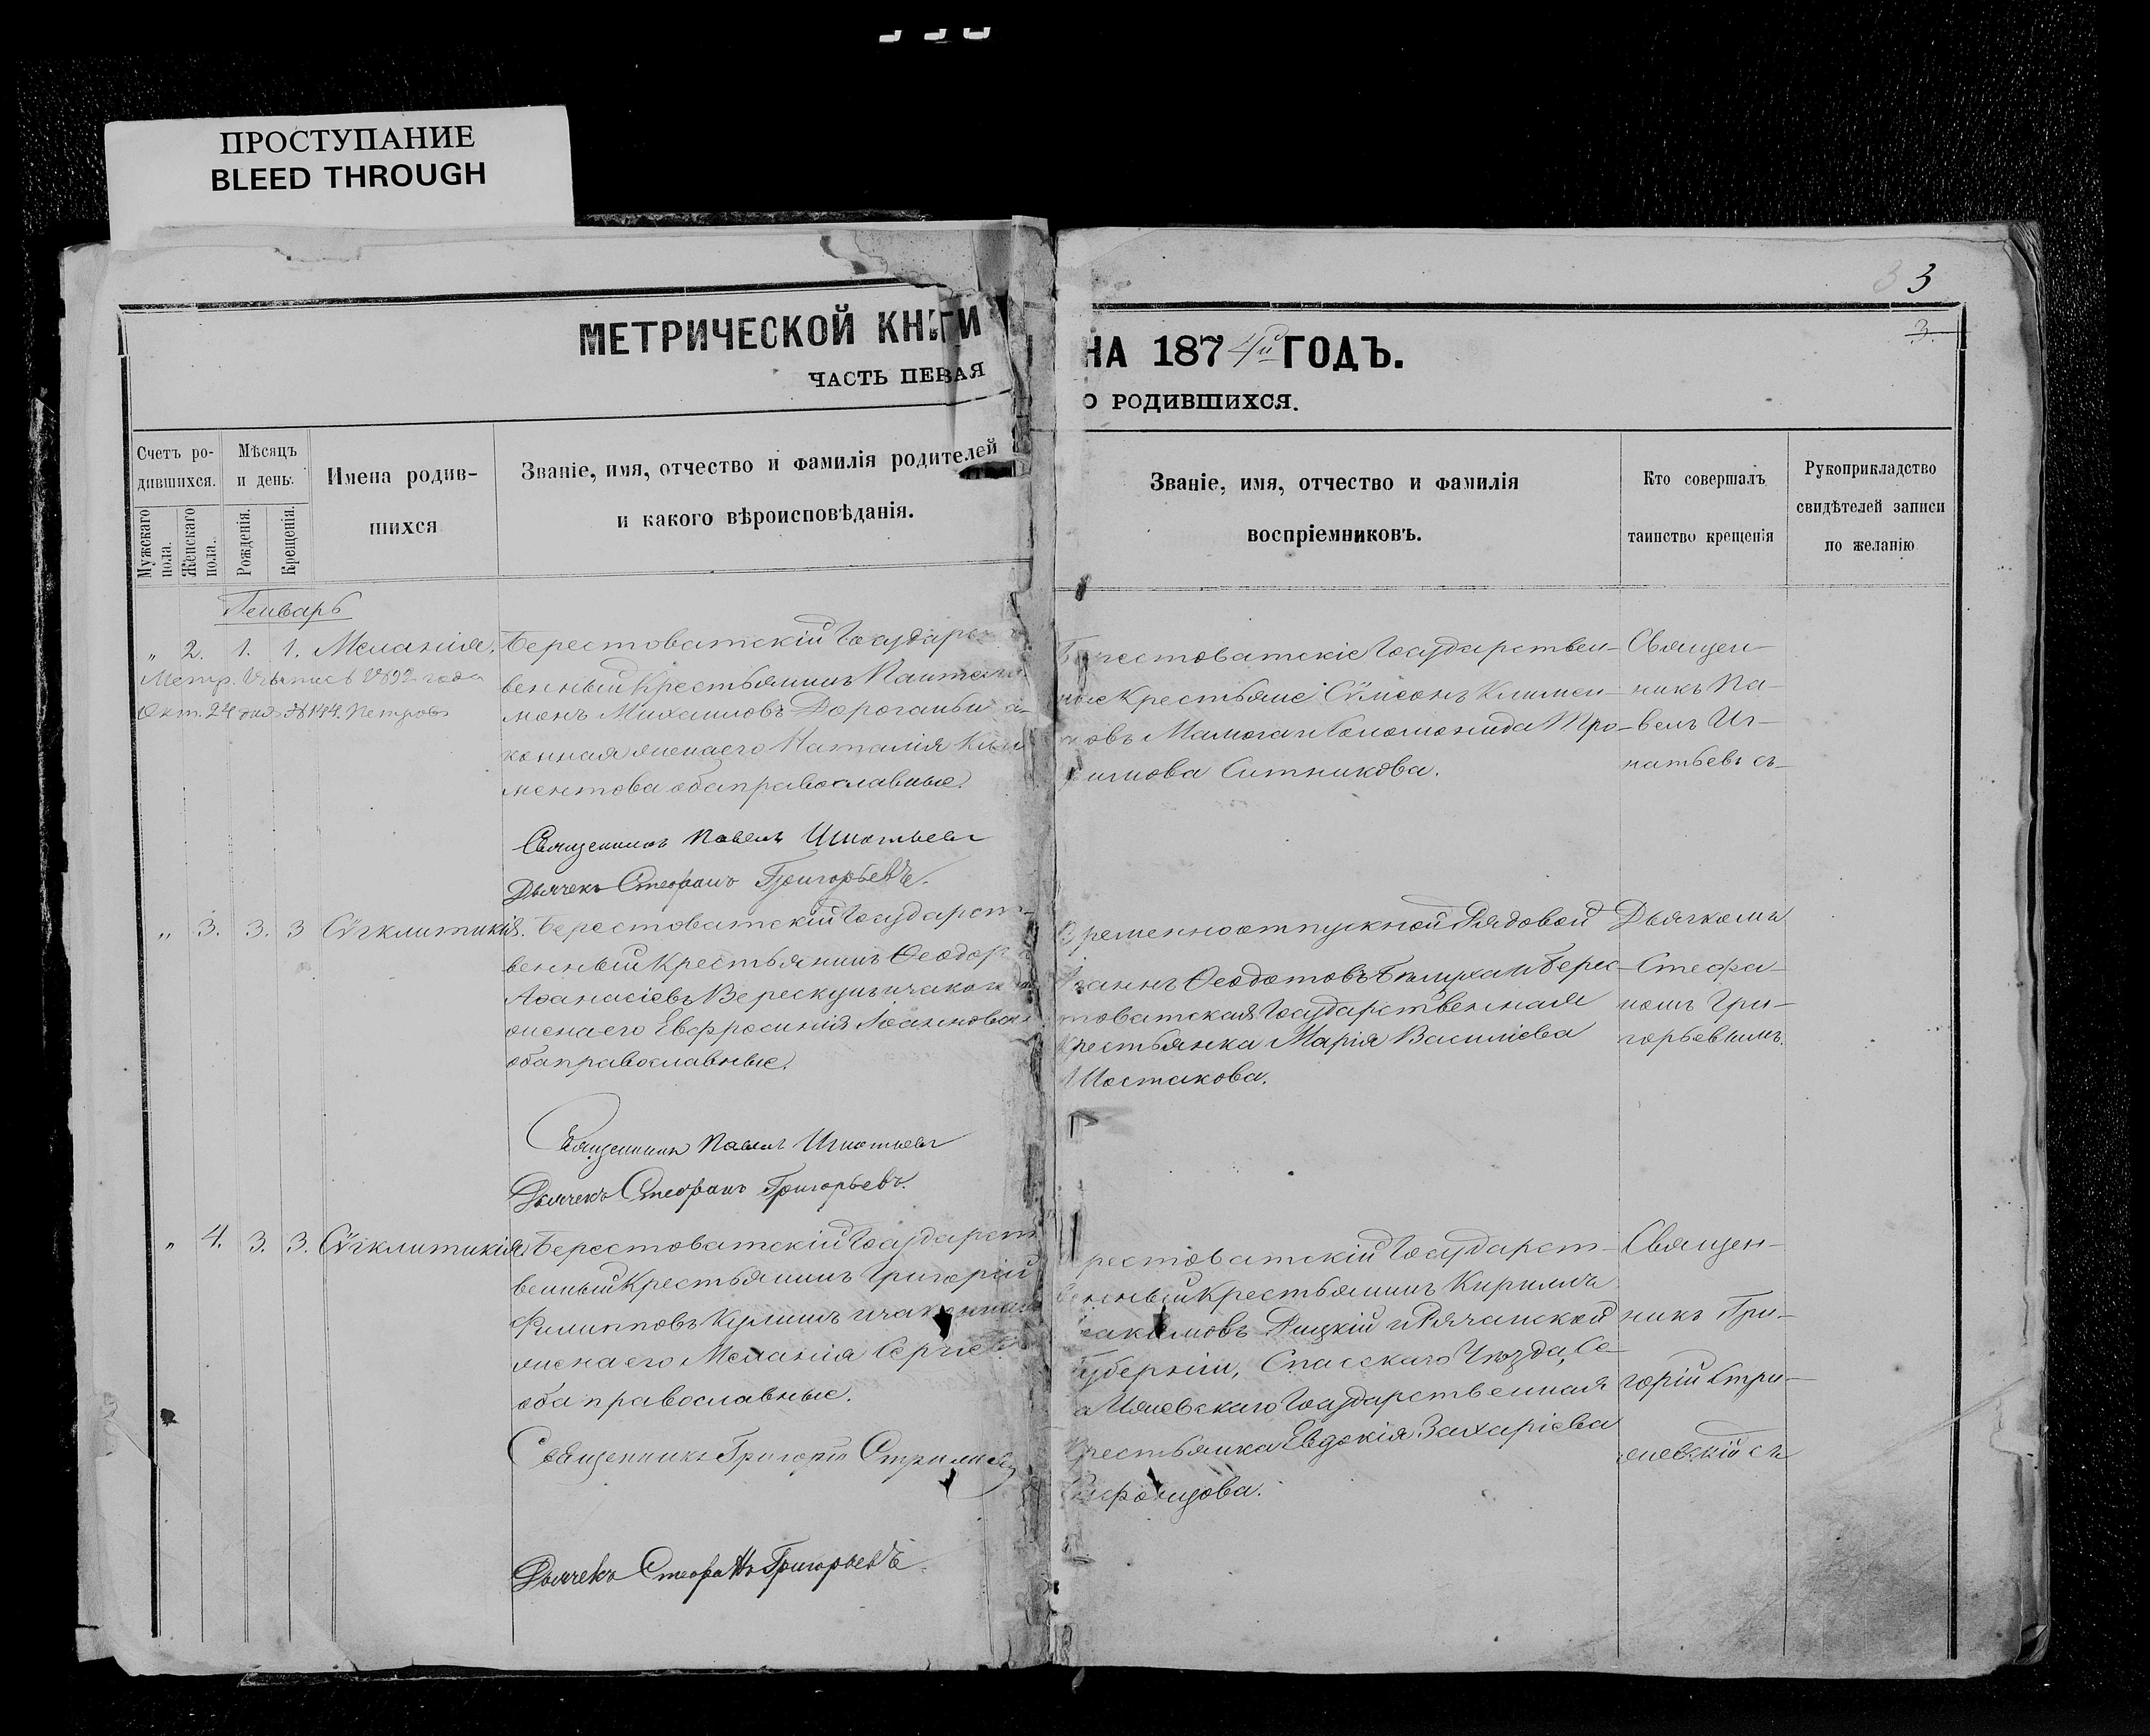 ПРОСТУПАНИЕ
BLEED THROUGH
3 3
3
МЕТРИЧЕСКОЙ КНИГИ
ЧАСТЬ ПЕРВАЯ
НА 1874й ГОДЪ.
О РОДИВШИХСЯ.
Счетъ ро-
дившихся.
Мужскаго пола.
Женскаго пола.
Мѣсяцъ
и день.
Рожденія.
Крещенія.
Имена родив-
шихся
Званіе, имя, отчество и фамилія родителей
и какого вѣроисповѣданія.
Званіе, имя, отчество и фамилія
воспріемниковъ.
Кто совершалъ
таинство крещенія
Рукоприкладство
свидѣтелей записи
по желанію
Генварь
„ 2. 1. 1. Меланія.
Метр. 1892 года
Окт. 24 дня № 194. Петровъ
Берестоватскій Государст
венный Крестьянинъ Пантеле
монъ Михаиловъ
конная жена его Наталія Кли
ментова оба православные.
Священникъ Павелъ Игнатьевъ
Дьячекъ Стефанъ Григорьевъ.
Берестоватскіе Государствен-
ные Крестьяне Сѵмеонъ Климен-
товъ и Соломонида Тро-
фимова Ситникова.
Священ-
никъ Па-
велъ Иг-
натьевъ съ
„ 3. 3. 3 Сѵгклитикія.
Берестоватскій Государст-
венный Крестьянинъ Ѳеодоръ
Аѳанасіевъ Верескунъ и закон
жена его Евфросинія Іоаннова
оба православные.
Священникъ Павелъ Игнатьевъ
Дьячекъ Стефанъ Григорьевъ.
Временно отпускной Рядовой
Іоаннъ Ѳеодотовъ и Берес-
товатская Государственная
Крестьянка Марія Василіева
Шостакова.
Дьячкомъ
Стефа-
номъ Гри-
горьевымъ.
„ 4. 3. 3. Сѵгклитикія.
Берестоватскій Государст
венный Крестьянинъ Григорій
Филипповъ Кулишъ и законная
жена его Меланія Сергіева
оба православные.
Священникъ Григорій
Дьячекъ Стефанъ Григорьевъ.
Берестоватскій Государст-
венный Крестьянинъ Кириллъ
и Рязанской
Губерніи, Спасскаго Уѣзда, Се
ла Государственная
Крестьянка Евдокія Захаріева
Священ-
никъ Гри-
горій Стри-
жевскій съ